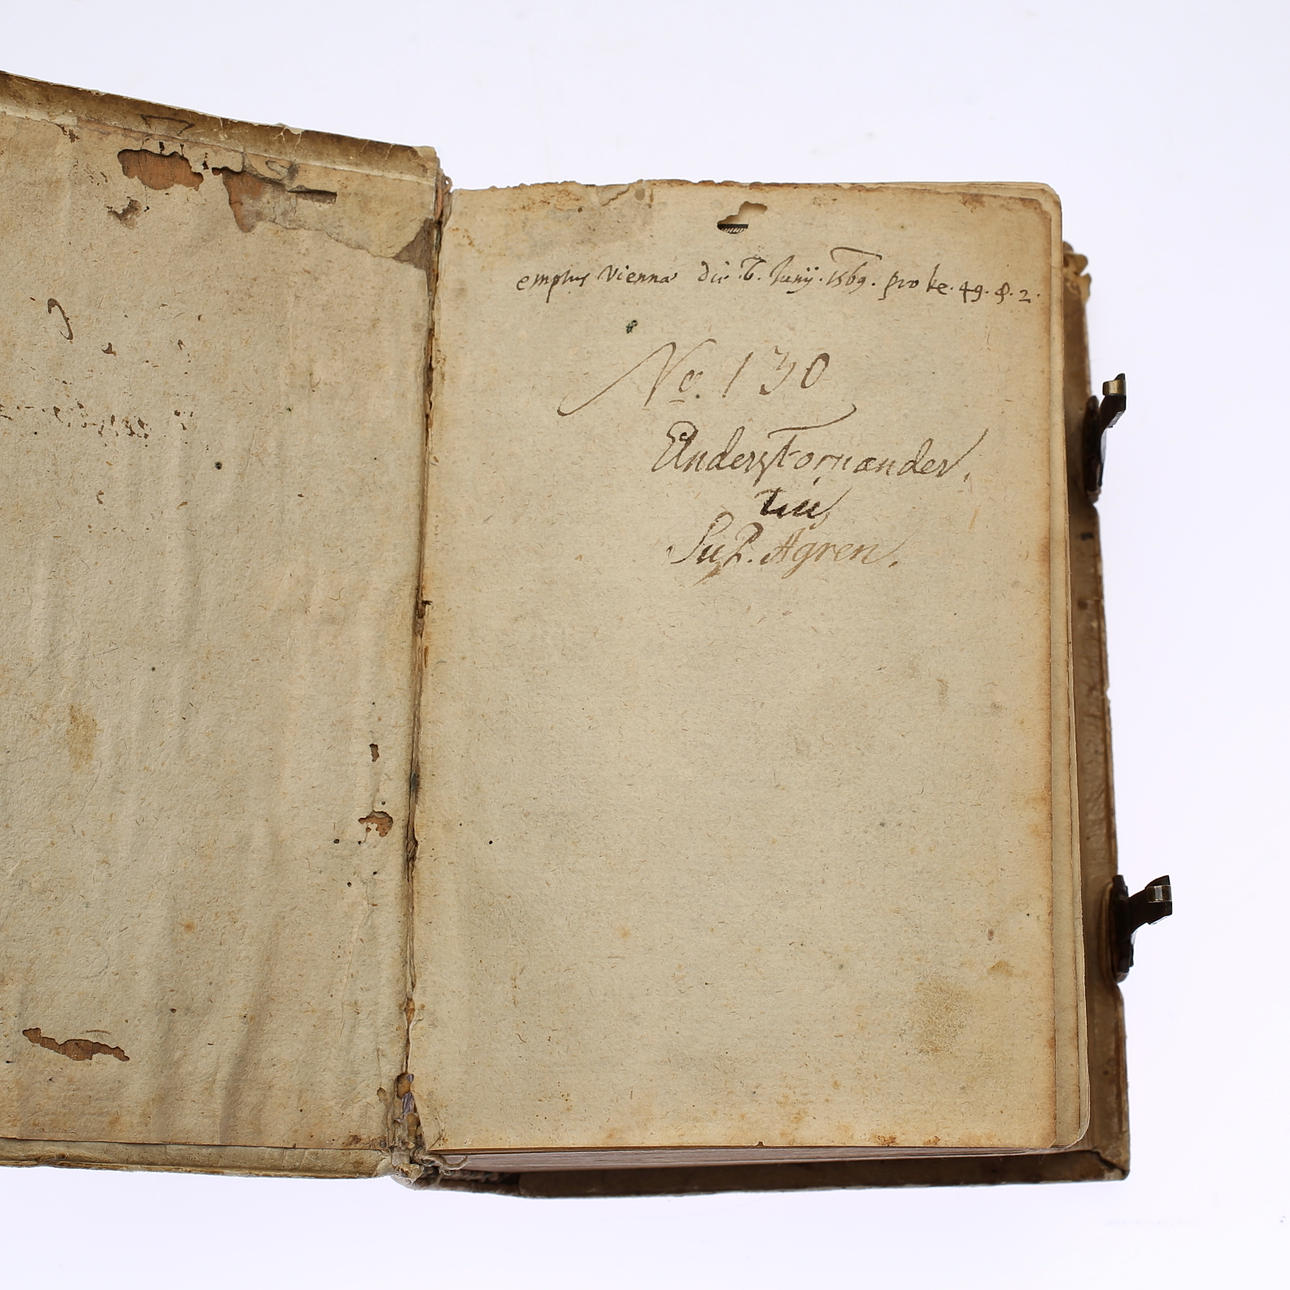 emptus Vienna die 6. Junij. 1569. pro ke. 49. ₰. 2.
No. 130
Anders Fornander.
Tit,
Sup. Agren.